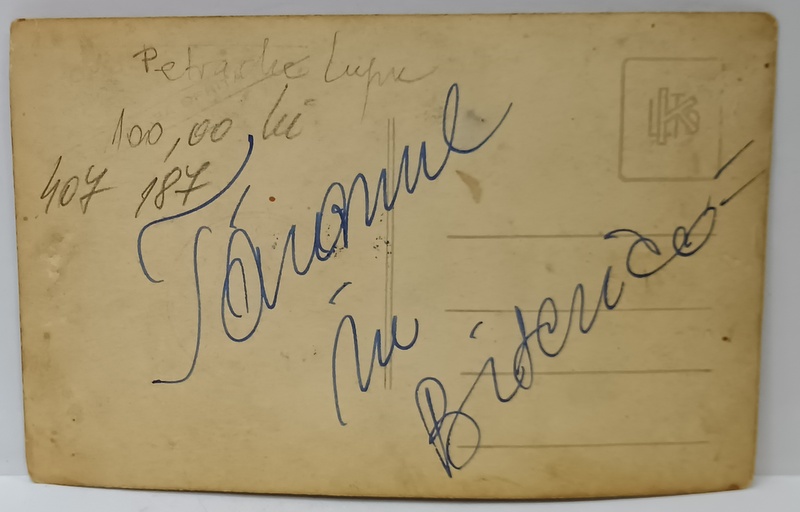 Petrache Lupu
100,00 lei
407 187
Țăranul
în
Biserică